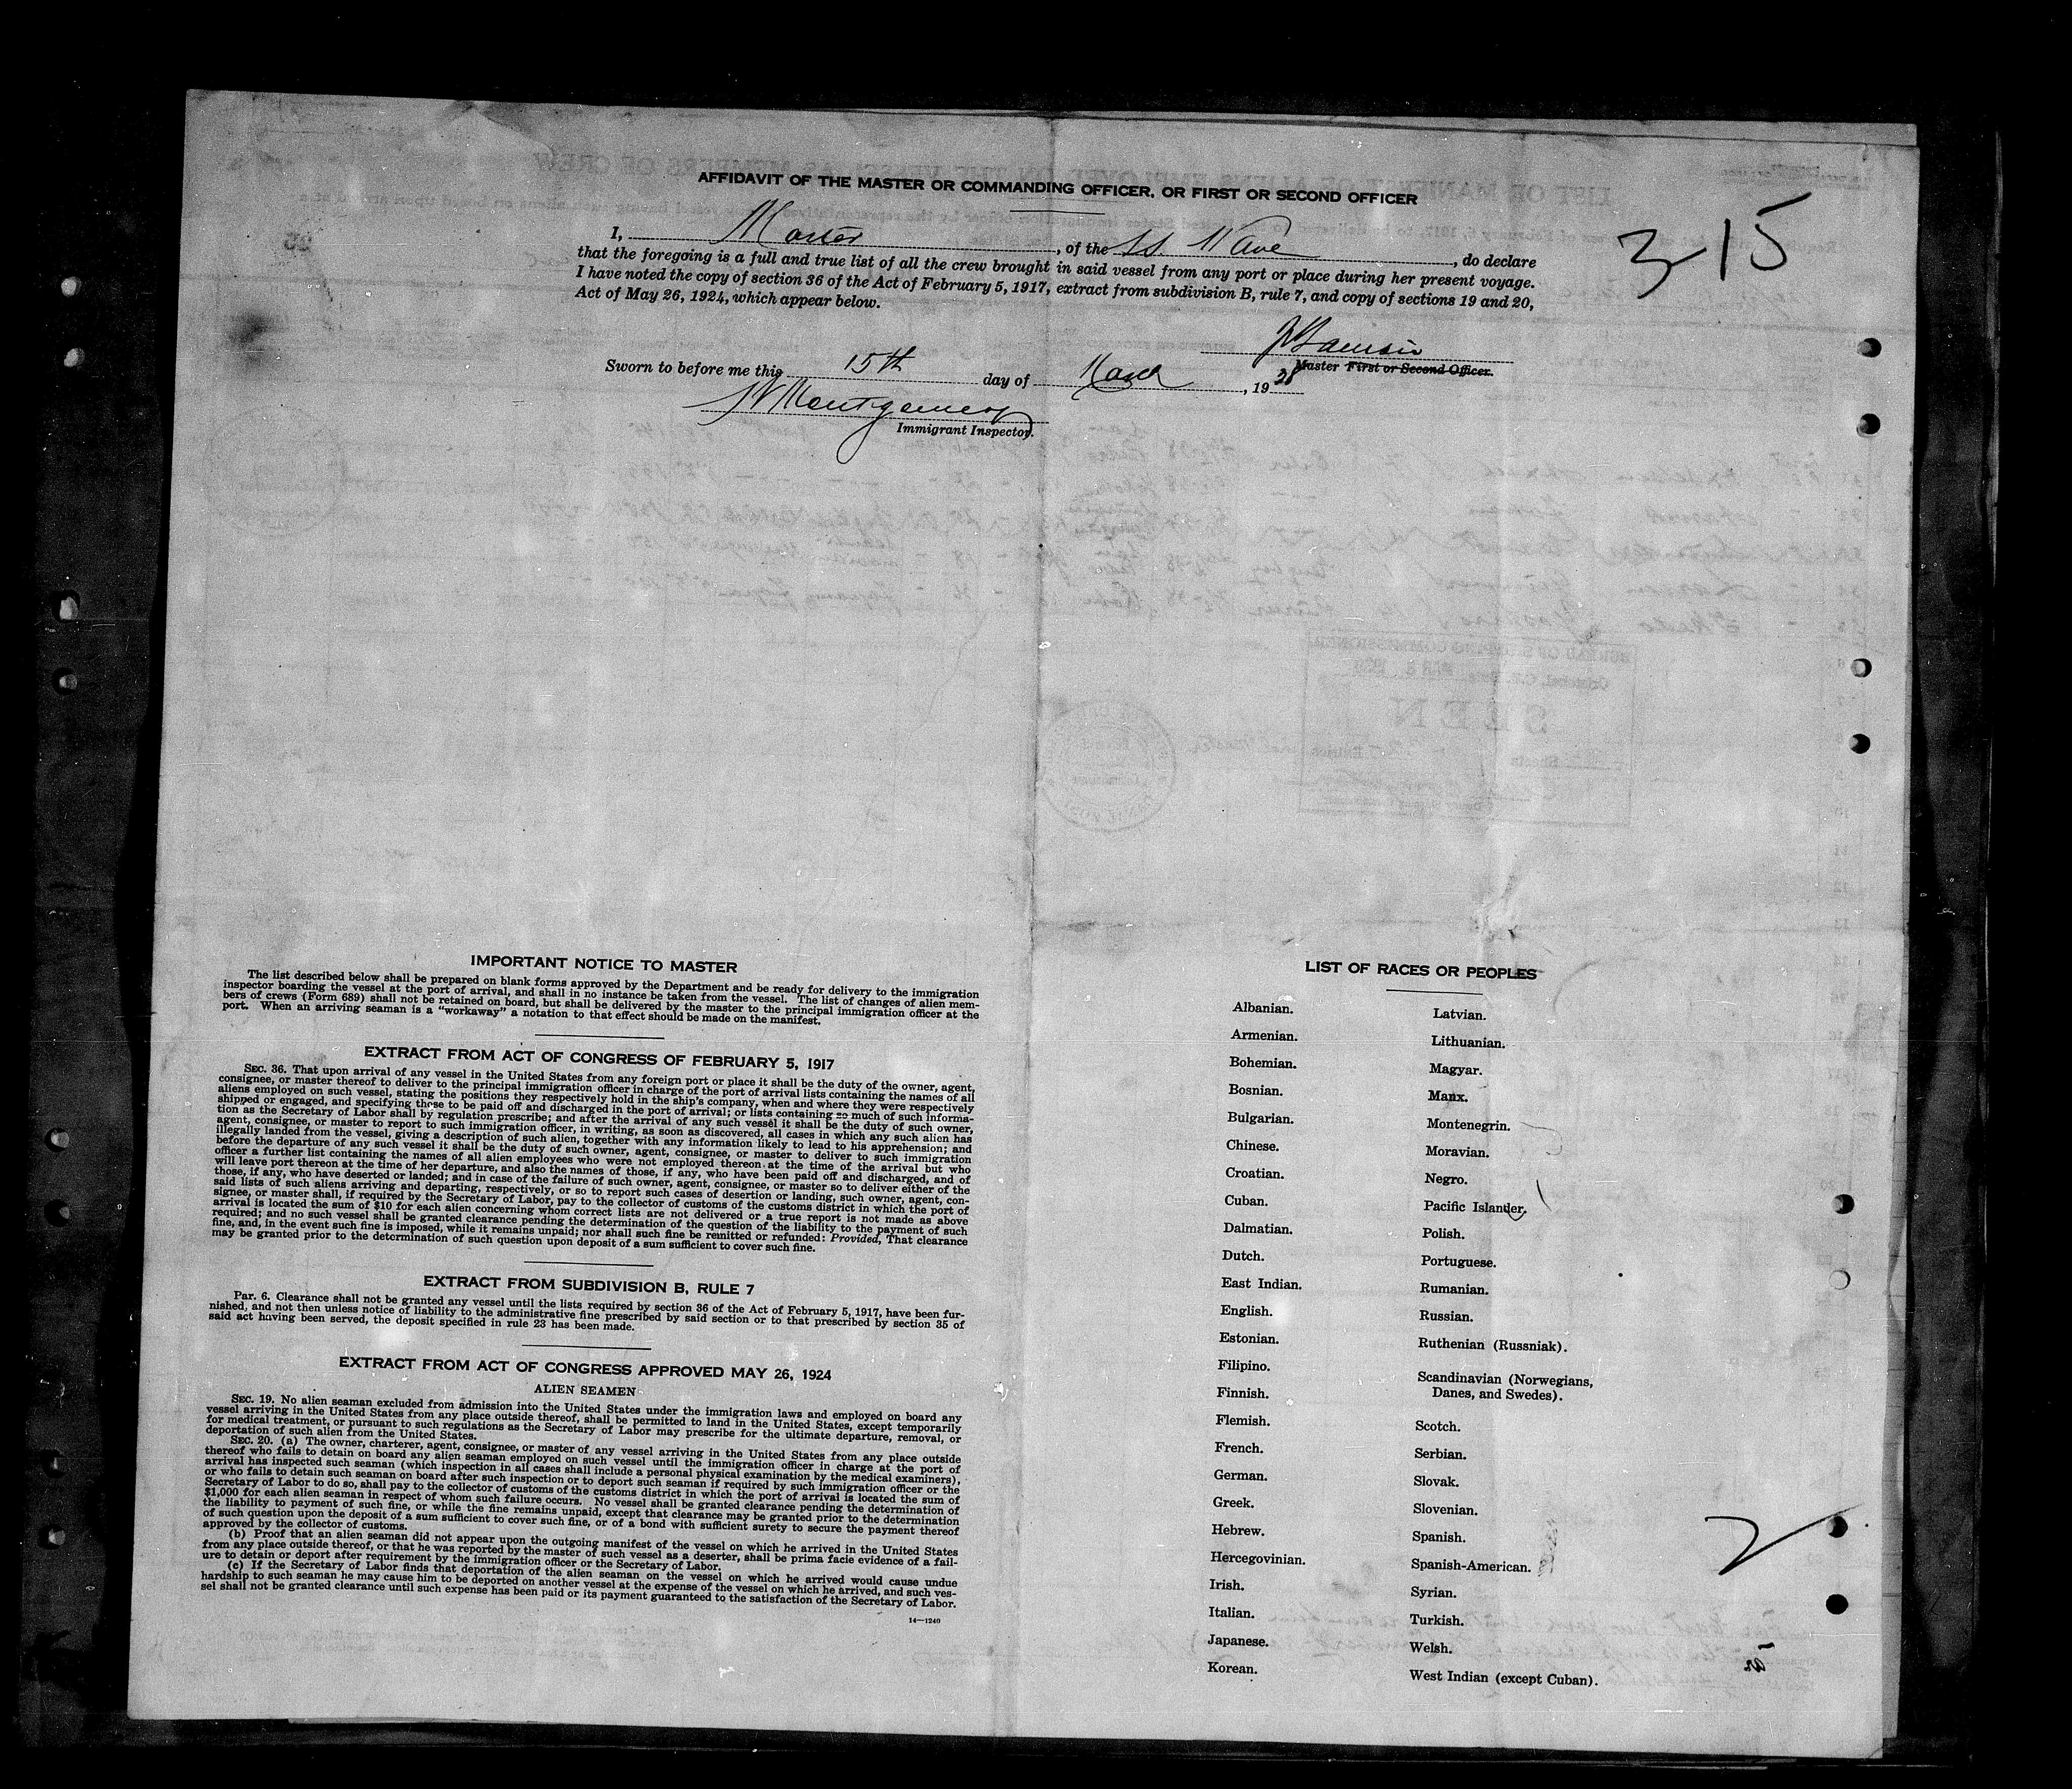 AFFIDAVIT OF THE MASTER OR COMMANDING OFFICER, OR FIRST OR SECOND OFFICER
3-15
I, Master, of the SS. , do declare
that the foregoing is a full and true list of all the crew brought in said vessel from any port or place during her present voyage.
I have noted the copy of section 36 of the Act of February 5, 1917, extract from subdivision B, rule 7, and copy of sections 19 and 20,
Act of May 26, 1924, which appear below.
Master First or Second Officer.
Sworn to before me this 15th day of March, 1938
Montgomery
Immigrant Inspector.
IMPORTANT NOTICE TO MASTER
The list described below shall be prepared on blank forms approved by the Department and be ready for delivery to the immigration
inspector boarding the vessel at the port of arrival, and shall in no instance be taken from the vessel. The list of changes of alien mem-
bers of crews (Form 689) shall not be retained on board, but shall be delivered by the master to the principal immigration officer at the
port. When an arriving seaman is a "workaway" a notation to that effect should be made on the manifest.
EXTRACT FROM ACT OF CONGRESS OF FEBRUARY 5, 1917
SEC. 36. That upon arrival of any vessel in the United States from any foreign port or place it shall be the duty of the owner, agent,
consignee, or master thereof to deliver to the principal immigration officer in charge of the port of arrival lists containing the names of all
aliens employed on such vessel, stating the positions they respectively hold in the ship's company, when and where they were respectively
shipped or engaged, and specifying those to be paid off and discharged in the port of arrival; or lists containing so much of such informa-
tion as the Secretary of Labor shall by regulation prescribe; and after the arrival of any such vessel it shall be the duty of such owner,
agent, consignee, or master to report to such immigration officer, in writing, as soon as discovered, all cases in which any such alien has
illegally landed from the vessel, giving a description of such alien, together with any information likely to lead to his apprehension; and
before the departure of any such vessel it shall be the duty of such owner, agent, consignee, or master to deliver to such immigration
officer a further list containing the names of all alien employees who were not employed thereon at the time of the arrival but who
will leave port thereon at the time of her departure, and also the names of those, if any, who have been paid off and discharged, and of
those, if any, who have deserted or landed; and in case of the failure of such owner, agent, consignee, or master so to deliver either of the
said lists of such aliens arriving and departing, respectively, or so to report such cases of desertion or landing, such owner, agent, con-
signee, or master shall, if required by the Secretary of Labor, pay to the collector of customs of the customs district in which the port of
arrival is located the sum of $10 for each alien concerning whom correct lists are not delivered or a true report is not made as above
required; and no such vessel shall be granted clearance pending the determination of the question of the liability to the payment of such
fine, and, in the event such fine is imposed, while it remains unpaid; nor shall such fine be remitted or refunded: Provided, That clearance
may be granted prior to the determination of such question upon deposit of a sum sufficient to cover such fine.
EXTRACT FROM SUBDIVISION B, RULE 7
Par. 6. Clearance shall not be granted any vessel until the lists required by section 36 of the Act of February 5, 1917, have been fur-
nished, and not then unless notice of liability to the administrative fine prescribed by said section or to that prescribed by section 35 of
said act having been served, the deposit specified in rule 23 has been made.
EXTRACT FROM ACT OF CONGRESS APPROVED MAY 26, 1924
ALIEN SEAMEN
SEC. 19. No alien seaman excluded from admission into the United States under the immigration laws and employed on board any
vessel arriving in the United States from any place outside thereof, shall be permitted to land in the United States, except temporarily
for medical treatment, or pursuant to such regulations as the Secretary of Labor may prescribe for the ultimate departure, removal, or
deportation of such alien from the United States.
SEC. 20. (a) The owner, charterer, agent, consignee, or master of any vessel arriving in the United States from any place outside
thereof who fails to detain on board any alien seaman employed on such vessel until the immigration officer in charge at the port of
arrival has inspected such seaman (which inspection in all cases shall include a personal physical examination by the medical examiners),
or who fails to detain such seaman on board after such inspection or to deport such seaman if required by such immigration officer or the
Secretary of Labor to do so, shall pay to the collector of customs of the customs district in which the port of arrival is located the sum of
$1,000 for each alien seaman in respect of whom such failure occurs. No vessel shall be granted clearance pending the determination of
the liability to payment of such fine, or while the fine remains unpaid, except that clearance may be granted prior to the determination
of such question upon the deposit of a sum sufficient to cover such fine, or of a bond with sufficient surety to secure the payment thereof
approved by the collector of customs.
(b) Proof that an alien seaman did not appear upon the outgoing manifest of the vessel on which he arrived in the United States
from any place outside thereof, or that he was reported by the master of such vessel as a deserter, shall be prima facie evidence of a fail-
ure to detain or deport after requirement by the immigration officer or the Secretary of Labor.
(c) If the Secretary of Labor finds that deportation of the alien seaman on the vessel on which he arrived would cause undue
hardship to such seaman he may cause him to be deported on another vessel at the expense of the vessel on which he arrived, and such ves-
sel shall not be granted clearance until such expense has been paid or its payment guaranteed to the satisfaction of the Secretary of Labor.
14—1240
LIST OF RACES OR PEOPLES
Albanian.
Armenian.
Bohemian.
Bosnian.
Bulgarian.
Chinese.
Croatian.
Cuban.
Dalmatian.
Dutch.
East Indian.
English.
Estonian.
Filipino.
Finnish.
Flemish.
French.
German.
Greek.
Hebrew.
Hercegovinian.
Irish.
Italian.
Japanese.
Korean.
Latvian.
Lithuanian.
Magyar.
Manx.
Montenegrin.
Moravian.
Negro.
Pacific Islander.
Polish.
Portuguese.
Rumanian.
Russian.
Ruthenian (Russniak).
Scandinavian (Norwegians,
Danes, and Swedes).
Scotch.
Serbian.
Slovak.
Slovenian.
Spanish.
Spanish-American.
Syrian.
Turkish.
Welsh.
West Indian (except Cuban).
2